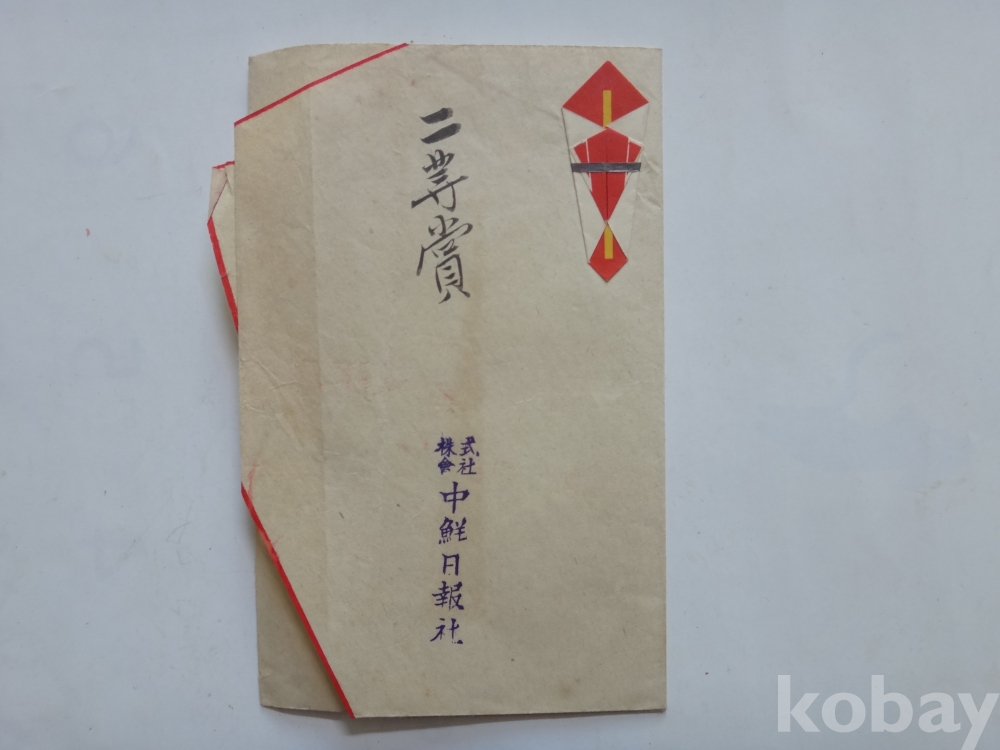 二等賞
株式
會社
中鮮日報社
kobay